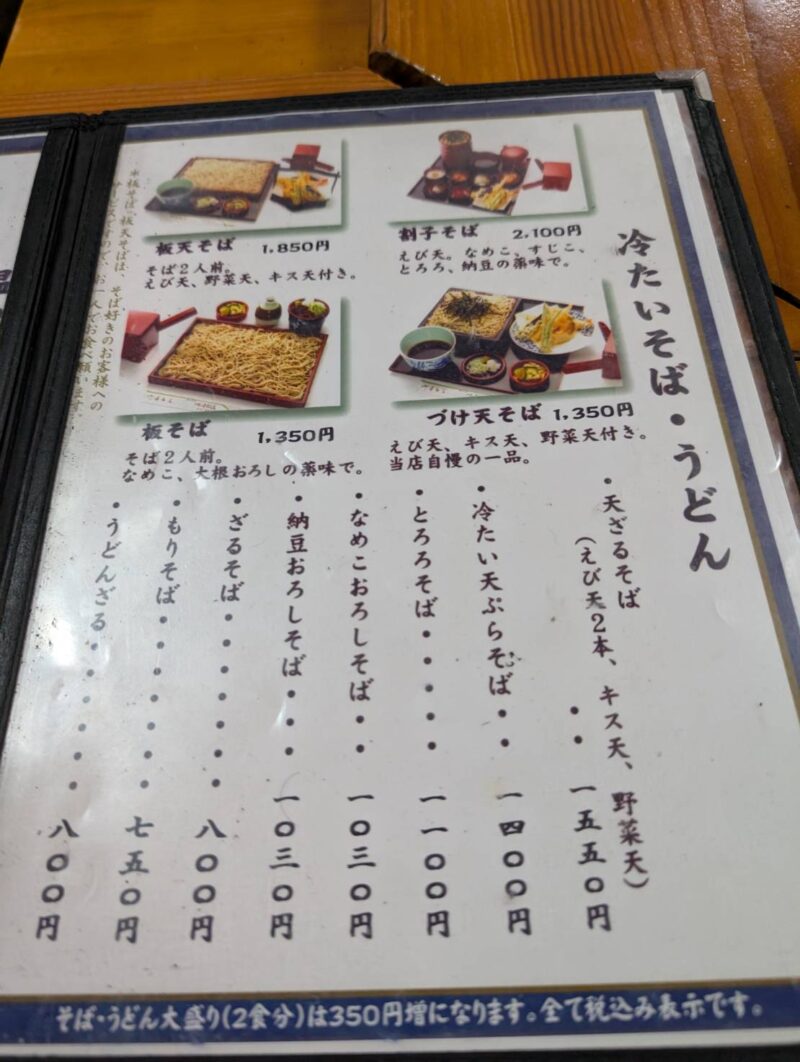 冷たいそば・うどん
板天そば 1,850円
そば2人前。
えび天、野菜天、キス天付き。
割子そば 2,100円
えび天。なめこ、すじこ、
とろろ、納豆の薬味で。
板そば 1,350円
そば2人前。
なめこ、大根おろしの薬味で。
づけ天そば 1,350円
えび天、キス天、野菜天付き。
当店自慢の一品。
※板そば、板天そばは、そば好きのお客様への
お一人でお食べ願います。
・天ざるそば・・一五五〇円
(えび天2本、キス天、野菜天)
・冷たい天ぷらそば・・一四〇〇円
・とろろそば・・・・・一一〇〇円
・なめこおろしそば・・一〇三〇円
・納豆おろしそば・・・一〇三〇円
・ざるそば・・・・・・・八〇〇円
・もりそば・・・・・・・七五〇円
・うどんざる・・・・・・八〇〇円
そば・うどん大盛り(2食分)は350円増になります。全て税込み表示です。